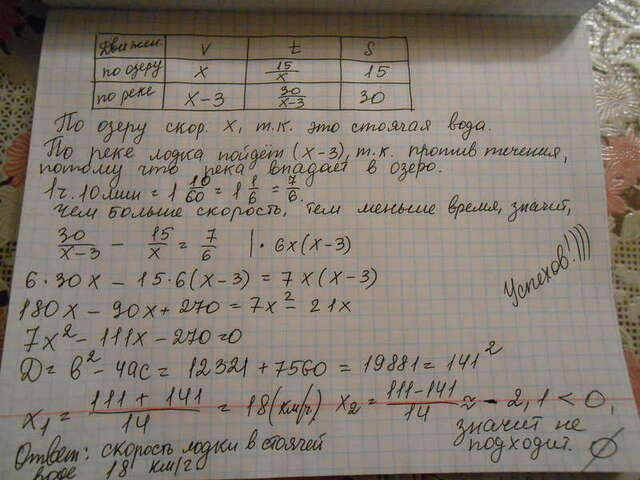 Движен. V t S
по озеру x 15/x 15
по реке x-3 30/(x-3) 30
По озеру скор. x, т.к. это стоячая вода.
По реке лодка пойдёт (x-3), т.к. против течения,
потому что река впадает в озеро.
1ч.10мин = 1 10/60 = 1 1/6 = 7/6.
Чем больше скорость, тем меньше время, значит,
30/(x-3) - 15/x = 7/6 | · 6x(x-3)
6·30x - 15·6(x-3) = 7x(x-3)
180x - 90x + 270 = 7x² - 21x
7x² - 111x - 270 = 0
D = b² - 4ac = 12321 + 7560 = 19881 = 141²
x₁ = (111 + 141)/14 = 18 (км/ч) x₂ = (111-141)/14 ≈ -2,1 < 0,
значит не
подходит. ∅
Ответ: скорость лодки в стоячей
воде 18 км/г
Успехов!)))